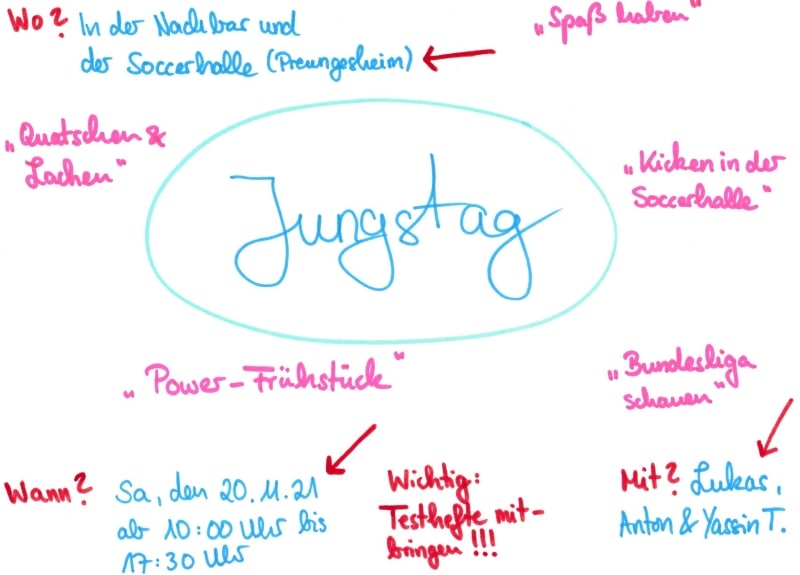 Wo? In der Nachbar und
der Soccerhalle (Preungesheim)
„Spaß haben"
„Quatschen &
Lachen"
„Kicken in der
Soccerhalle"
Jungstag
„Power-Frühstück"
„Bundesliga
schauen"
Wann? Sa, den 20.11.21
ab 10:00 Uhr bis
17:30 Uhr
Wichtig:
Testhefte mit-
bringen!!!
Mit? Lukas,
Anton & Yassin T.